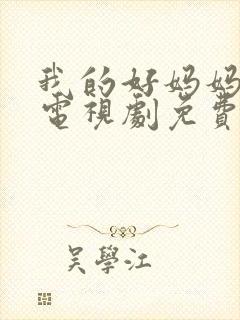 我的好妈妈
電視劇免費
吳學江